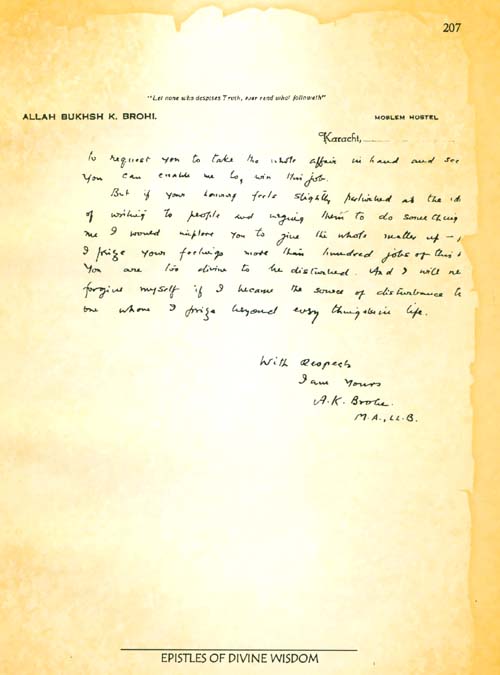 207
"Let none who despises Truth, ever read what followeth"
ALLAH BUKHSH K. BROHI.
MOSLEM HOSTEL
Karachi,
to request you to take the whole affair in hand and see
you can enable me to, win this job.
But if your honour feels slightly perturbed at the id
of writing to people and urging them to do something
me I would implore you to give the whole matter up —
I prize your feelings more than hundred jobs of this
You are too divine to be disturbed. And I will ne
forgive myself if I became the source of disturbance to
one whom I prize beyond every thing else in life.
With respects
I am Yours
A.K. Brohi.
M.A., LL.B.
EPISTLES OF DIVINE WISDOM